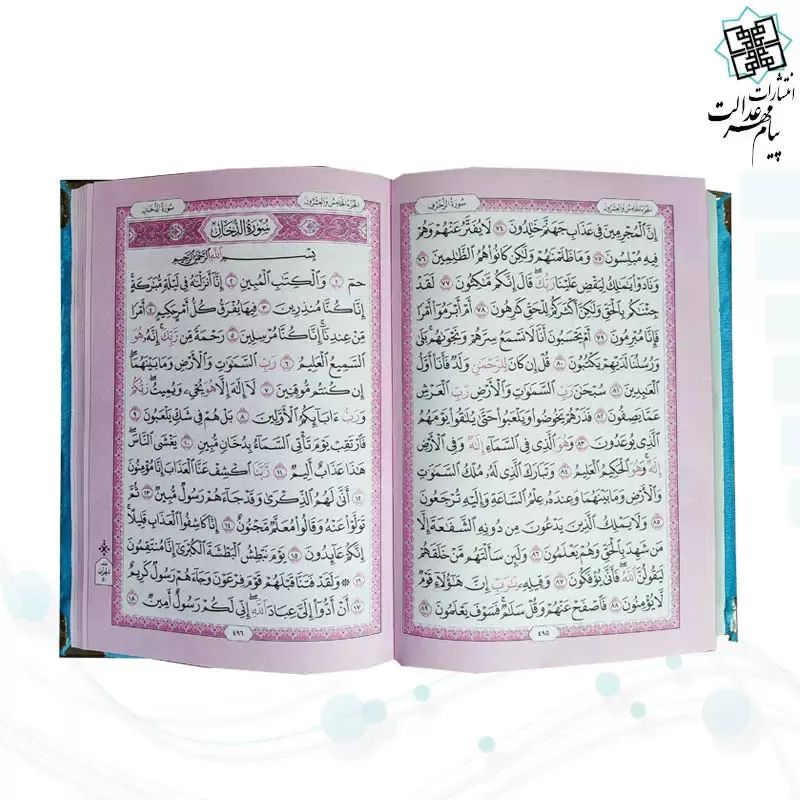 انتشارات
پیام مهر عدالت
الجزء الخامس والعشرون
سورة الزخرف
إِنَّ ٱلْمُجْرِمِينَ فِى عَذَابِ جَهَنَّمَ خَٰلِدُونَ ٧٤ لَا يُفَتَّرُ عَنْهُمْ وَهُمْ
فِيهِ مُبْلِسُونَ ٧٥ وَمَا ظَلَمْنَٰهُمْ وَلَٰكِن كَانُوا۟ هُمُ ٱلظَّٰلِمِينَ ٧٦
وَنَادَوْا۟ يَٰمَٰلِكُ لِيَقْضِ عَلَيْنَا رَبُّكَ ۖ قَالَ إِنَّكُم مَّٰكِثُونَ ٧٧ لَقَدْ
جِئْنَٰكُم بِٱلْحَقِّ وَلَٰكِنَّ أَكْثَرَكُمْ لِلْحَقِّ كَٰرِهُونَ ٧٨ أَمْ أَبْرَمُوٓا۟ أَمْرًا
فَإِنَّا مُبْرِمُونَ ٧٩ أَمْ يَحْسَبُونَ أَنَّا لَا نَسْمَعُ سِرَّهُمْ وَنَجْوَىٰهُم ۚ بَلَىٰ
وَرُسُلُنَا لَدَيْهِمْ يَكْتُبُونَ ٨٠ قُلْ إِن كَانَ لِلرَّحْمَٰنِ وَلَدٌ فَأَنَا۠ أَوَّلُ
ٱلْعَٰبِدِينَ ٨١ سُبْحَٰنَ رَبِّ ٱلسَّمَٰوَٰتِ وَٱلْأَرْضِ رَبِّ ٱلْعَرْشِ
عَمَّا يَصِفُونَ ٨٢ فَذَرْهُمْ يَخُوضُوا۟ وَيَلْعَبُوا۟ حَتَّىٰ يُلَٰقُوا۟ يَوْمَهُمُ
ٱلَّذِى يُوعَدُونَ ٨٣ وَهُوَ ٱلَّذِى فِى ٱلسَّمَآءِ إِلَٰهٌ وَفِى ٱلْأَرْضِ
إِلَٰهٌ ۚ وَهُوَ ٱلْحَكِيمُ ٱلْعَلِيمُ ٨٤ وَتَبَارَكَ ٱلَّذِى لَهُۥ مُلْكُ ٱلسَّمَٰوَٰتِ
وَٱلْأَرْضِ وَمَا بَيْنَهُمَا وَعِندَهُۥ عِلْمُ ٱلسَّاعَةِ وَإِلَيْهِ تُرْجَعُونَ
٨٥ وَلَا يَمْلِكُ ٱلَّذِينَ يَدْعُونَ مِن دُونِهِ ٱلشَّفَٰعَةَ إِلَّا
مَن شَهِدَ بِٱلْحَقِّ وَهُمْ يَعْلَمُونَ ٨٦ وَلَئِن سَأَلْتَهُم مَّنْ خَلَقَهُمْ
لَيَقُولُنَّ ٱللَّهُ ۖ فَأَنَّىٰ يُؤْفَكُونَ ٨٧ وَقِيلِهِۦ يَٰرَبِّ إِنَّ هَٰٓؤُلَآءِ قَوْمٌ
لَّا يُؤْمِنُونَ ٨٨ فَٱصْفَحْ عَنْهُمْ وَقُلْ سَلَٰمٌ ۚ فَسَوْفَ يَعْلَمُونَ ٨٩
٤٩٥
الجزء الخامس والعشرون
سورة الدخان
سُورَةُ الدُّخَانِ
بِسْمِ ٱللَّهِ ٱلرَّحْمَٰنِ ٱلرَّحِيمِ
حمٓ ١ وَٱلْكِتَٰبِ ٱلْمُبِينِ ٢ إِنَّآ أَنزَلْنَٰهُ فِى لَيْلَةٍ مُّبَٰرَكَةٍ ۚ
إِنَّا كُنَّا مُنذِرِينَ ٣ فِيهَا يُفْرَقُ كُلُّ أَمْرٍ حَكِيمٍ ٤ أَمْرًا
مِّنْ عِندِنَآ ۚ إِنَّا كُنَّا مُرْسِلِينَ ٥ رَحْمَةً مِّن رَّبِّكَ ۚ إِنَّهُۥ هُوَ
ٱلسَّمِيعُ ٱلْعَلِيمُ ٦ رَبِّ ٱلسَّمَٰوَٰتِ وَٱلْأَرْضِ وَمَا بَيْنَهُمَآ ۖ
إِن كُنتُم مُّوقِنِينَ ٧ لَآ إِلَٰهَ إِلَّا هُوَ يُحْىِۦ وَيُمِيتُ ۖ رَبُّكُمْ
وَرَبُّ ءَابَآئِكُمُ ٱلْأَوَّلِينَ ٨ بَلْ هُمْ فِى شَكٍّ يَلْعَبُونَ ٩
فَٱرْتَقِبْ يَوْمَ تَأْتِى ٱلسَّمَآءُ بِدُخَانٍ مُّبِينٍ ١٠ يَغْشَى ٱلنَّاسَ ۖ
هَٰذَا عَذَابٌ أَلِيمٌ ١١ رَّبَّنَا ٱكْشِفْ عَنَّا ٱلْعَذَابَ إِنَّا مُؤْمِنُونَ
١٢ أَنَّىٰ لَهُمُ ٱلذِّكْرَىٰ وَقَدْ جَآءَهُمْ رَسُولٌ مُّبِينٌ ١٣ ثُمَّ
تَوَلَّوْا۟ عَنْهُ وَقَالُوا۟ مُعَلَّمٌ مَّجْنُونٌ ١٤ إِنَّا كَاشِفُوا۟ ٱلْعَذَابِ قَلِيلًا ۚ
إِنَّكُمْ عَآئِدُونَ ١٥ يَوْمَ نَبْطِشُ ٱلْبَطْشَةَ ٱلْكُبْرَىٰٓ إِنَّا مُنتَقِمُونَ
١٦ وَلَقَدْ فَتَنَّا قَبْلَهُمْ قَوْمَ فِرْعَوْنَ وَجَآءَهُمْ رَسُولٌ كَرِيمٌ
١٧ أَنْ أَدُّوٓا۟ إِلَىَّ عِبَادَ ٱللَّهِ ۖ إِنِّى لَكُمْ رَسُولٌ أَمِينٌ ١٨
٤٩٦